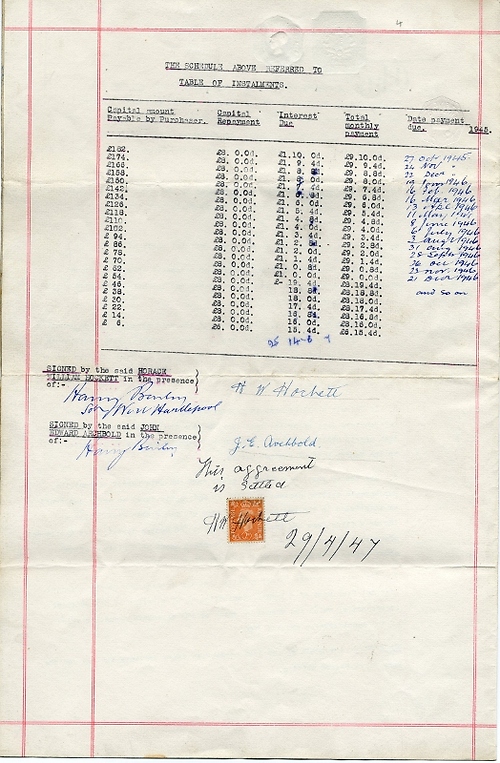 4
THE SCHEDULE ABOVE REFERRED TO
TABLE OF INSTALMENTS.
Capital amount Capital Interest Total Date payment
Payable by Purchaser. Repayment Due. monthly due. 1945.
payment
£182. £8. 0.0d. £1.10. 0d. £9.10.0d. 27 Oct 1945.
£174. £8. 0.0d. £1. 9. 4d. £9. 9.4d. 24 Nov "
£166. £8. 0.0d. £1. 8. 8d. £9. 8.8d. 22 Dec "
£158. £8. 0.0d. £1. 8. 0d. £9. 8.0d. 19 Jan 1946
£150. £8. 0.0d. £1. 7. 4d. £9. 7.4d. 16 Feb 1946
£142. £8. 0.0d. £1. 6. 8d. £9. 6.8d. 16 Mar 1946
£134. £8. 0.0d. £1. 6. 0d. £9. 6.0d. 13 1946
£126. £8. 0.0d. £1. 5. 4d. £9. 5.4d. 11 May 1946
£118. £8. 0.0d. £1. 4. 8d. £9. 4.8d. 8 June 1946
£110. £8. 0.0d. £1. 4. 0d. £9. 4.0d. 6 July 1946
£102. £8. 0.0d. £1. 3. 4d. £9. 3.4d. 3 Augt 1946
£ 94. £8. 0.0d. £1. 2. 8d. £9. 2.8d. 31 Aug 1946
£ 86. £8. 0.0d. £1. 2. 0d. £9. 2.0d. 28 Sept 1946
£ 78. £8. 0.0d. £1. 1. 4d. £9. 1.4d. 26 Oct 1946
£ 70. £8. 0.0d. £1. 0. 8d. £9. 0.8d. 23 Nov. 1946
£ 62. £8. 0.0d. £1. 0. 0d. £9. 0.0d. 21 Decr 1946
£ 54. £8. 0.0d. £- 19. 4d. £8.19.4d.
£ 46. £8. 0.0d. 18. 8d. £8.18.8d. and so on
£ 38. £8. 0.0d. 18. 0d. £8.18.0d.
£ 30. £8. 0.0d. 17. 4d. £8.17.4d.
£ 22. £8. 0.0d. 16. 8d. £8.16.8d.
£ 14. £8. 0.0d. 16. 0d. £8.16.0d.
£ 6. £6. 0.0d. 15. 4d. £6.15.4d.
SIGNED by the said HORACE
WILLIAM HOCKETT in the presence
of:-
H W Hockett
Harry
West Hartlepool
SIGNED by the said JOHN
EDWARD ARCHBOLD in the presence
of:-
J. E. Archbold
Harry
This aggreement
is
HW Hockett
29/4/47